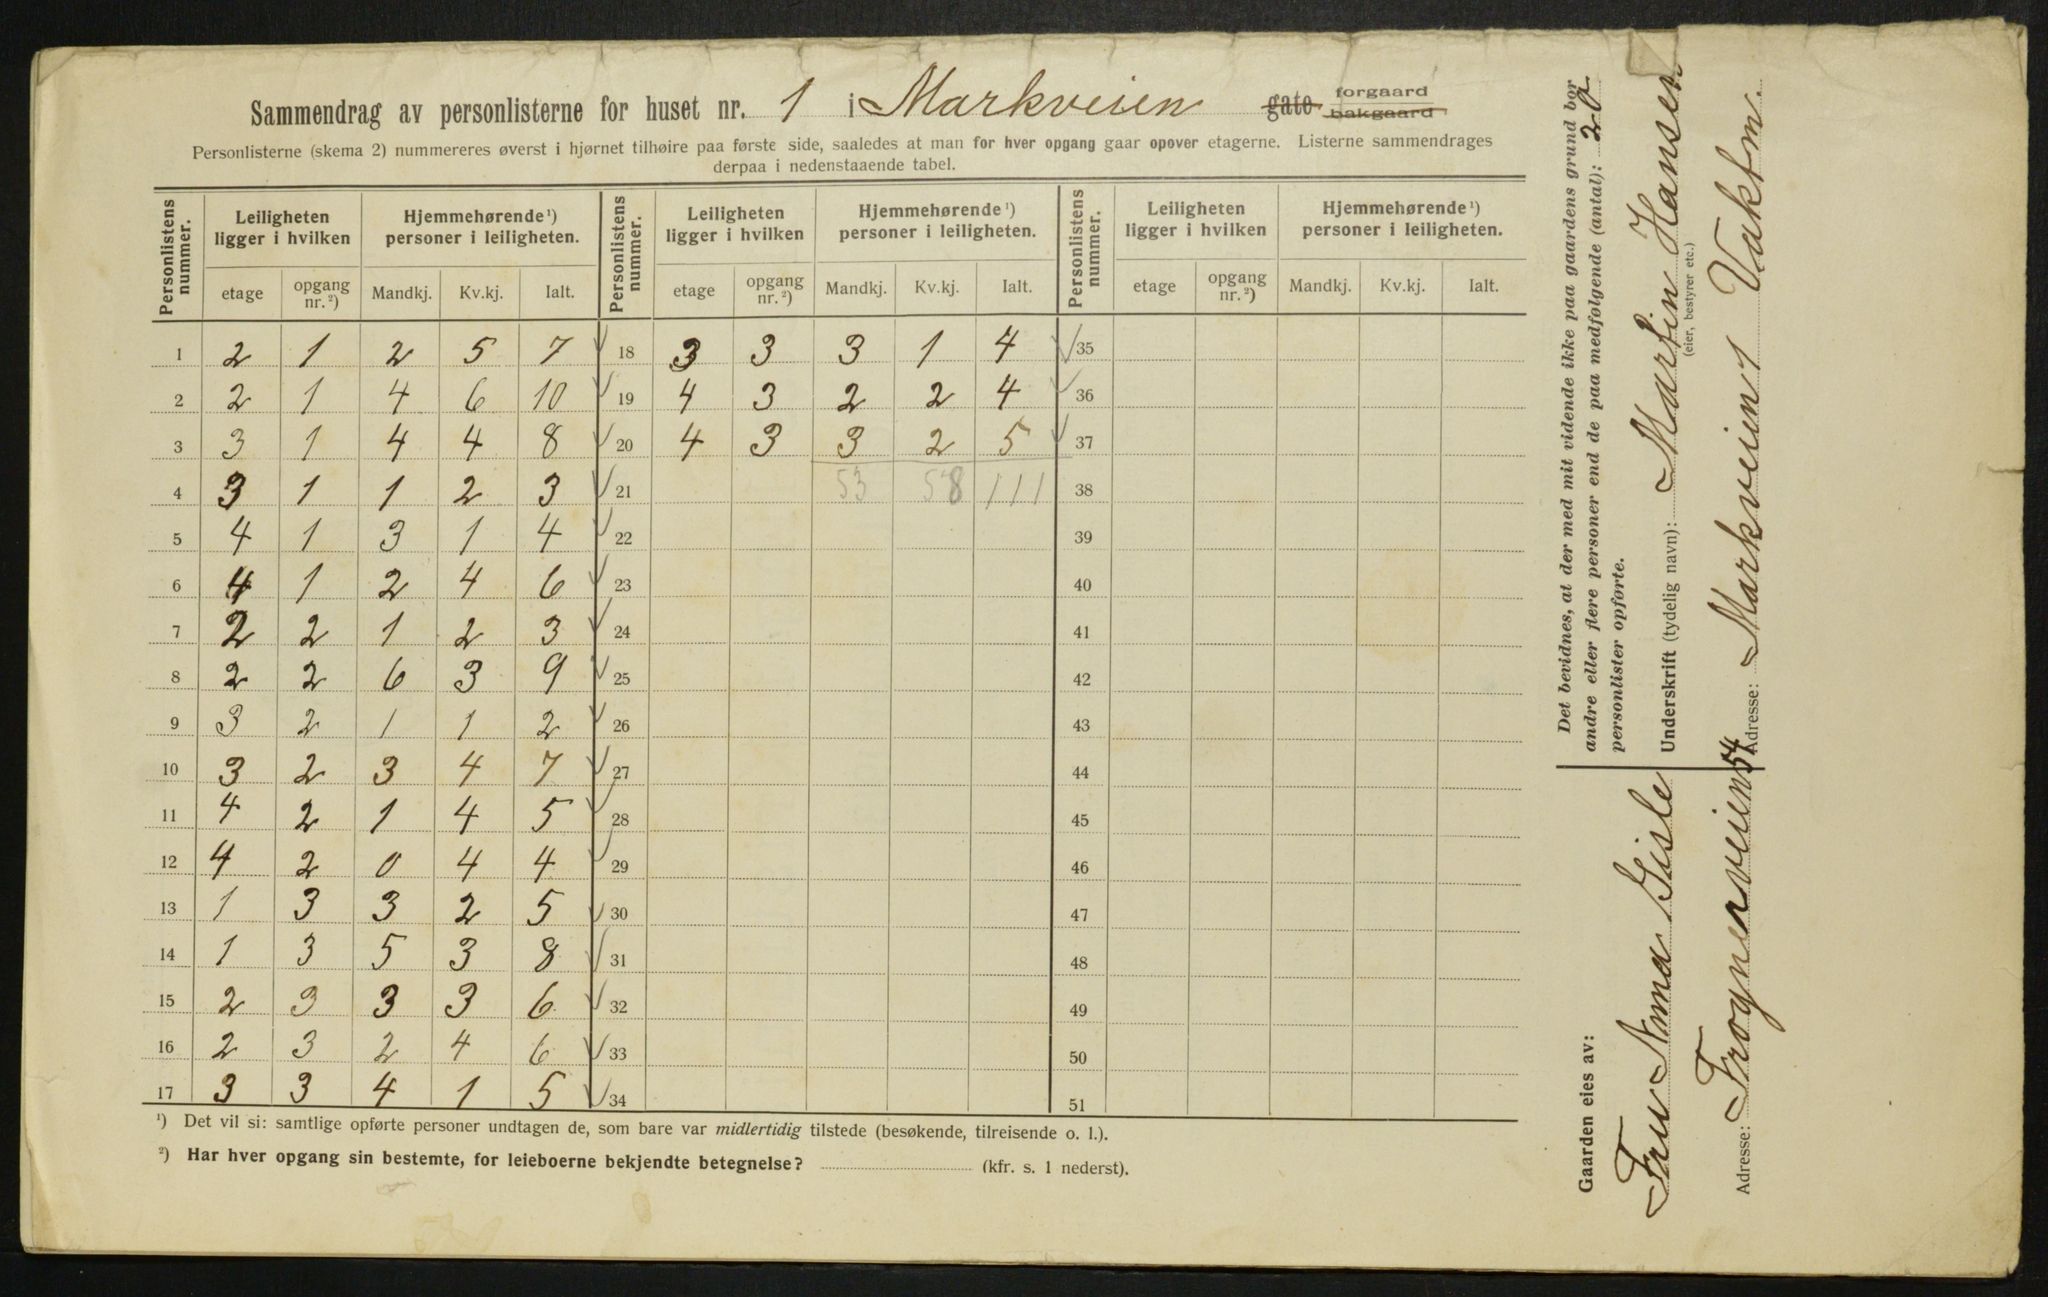 Sammendrag av personlisterne for huset nr. 1 i Markveien gate forgaard bakgaard
Personlisterne (skema 2) nummereres øverst i hjørnet tilhøire paa første side, saaledes at man for hver opgang gaar opover etagerne. Listerne sammendrages
derpaa i nedenstaaende tabel.
Personlistens nummer. Leiligheten ligger i hvilken Hjemmehørende ¹) personer i leiligheten. Personlistens nummer. Leiligheten ligger i hvilken Hjemmehørende ¹) personer i leiligheten. Personlistens nummer. Leiligheten ligger i hvilken Hjemmehørende ¹) personer i leiligheten.
etage opgang nr. ²) Mandkj. Kv.kj. Ialt. etage opgang nr. ²) Mandkj. Kv.kj. Ialt. etage opgang nr. ²) Mandkj. Kv.kj. Ialt.
1 2 1 2 5 7 18 3 3 3 1 4 35
2 2 1 4 6 10 19 4 3 2 2 4 36
3 3 1 4 4 8 20 4 3 3 2 5 37
4 3 1 1 2 3 21 53 58 111 38
5 4 1 3 1 4 22 39
6 4 1 2 4 6 23 40
7 2 2 1 2 3 24 41
8 2 2 6 3 9 25 42
9 3 2 1 1 2 26 43
10 3 2 3 4 7 27 44
11 4 2 1 4 5 28 45
12 4 2 0 4 4 29 46
13 1 3 3 2 5 30 47
14 1 3 5 3 8 31 48
15 2 3 3 3 6 32 49
16 2 3 2 4 6 33 50
17 3 3 4 1 5 34 51
¹) Det vil si: samtlige opførte personer undtagen de, som bare var midlertidig tilstede (besøkende, tilreisende o. l.).
²) Har hver opgang sin bestemte, for leieboerne bekjendte betegnelse? (kfr. s. 1 nederst).
Det bevidnes, at der med mit vidende ikke paa gaardens grund bor
andre eller flere personer end de paa medfølgende (antal): 20
personlister opførte.
Underskrift (tydelig navn): Martin Hansen
(eier, bestyrer etc.)
Adresse: Markveien 1 Vaktm.
Gaarden eies av:
Fru Anna Gisle
Adresse: Frognerveien 54